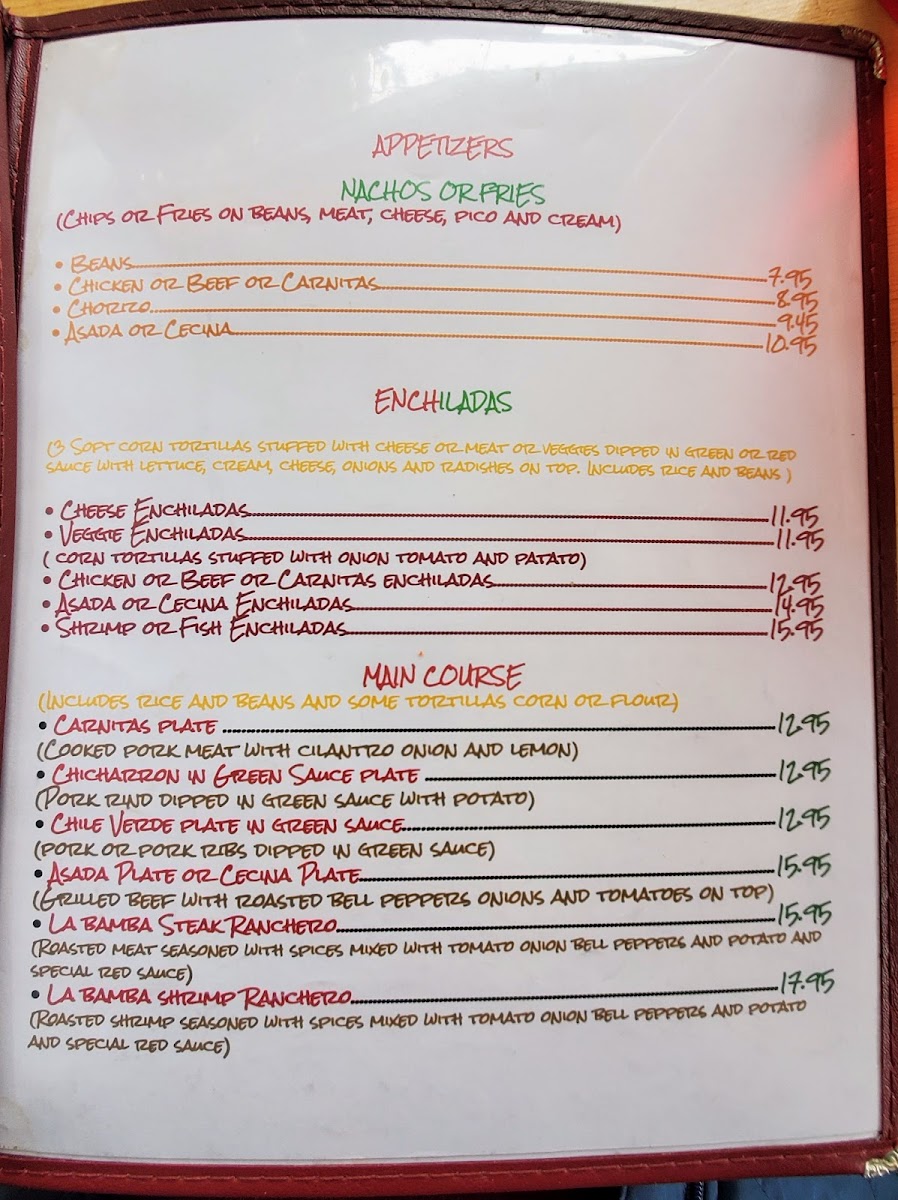 APPETIZERS
NACHOS OR FRIES
(CHIPS OR FRIES ON BEANS, MEAT, CHEESE, PICO AND CREAM)
• BEANS 7.95
• CHICKEN OR BEEF OR CARNITAS 8.95
• CHORIZO 9.45
• ASADA OR CECINA 10.95
ENCHILADAS
(3 SOFT CORN TORTILLAS STUFFED WITH CHEESE OR MEAT OR VEGGIES DIPPED IN GREEN OR RED
SAUCE WITH LETTUCE, CREAM, CHEESE, ONIONS AND RADISHES ON TOP. INCLUDES RICE AND BEANS )
• CHEESE ENCHILADAS 11.95
• VEGGIE ENCHILADAS 11.95
( CORN TORTILLAS STUFFED WITH ONION TOMATO AND PATATO)
• CHICKEN OR BEEF OR CARNITAS ENCHILADAS 12.95
• ASADA OR CECINA ENCHILADAS 14.95
• SHRIMP OR FISH ENCHILADAS 15.95
MAIN COURSE
(INCLUDES RICE AND BEANS AND SOME TORTILLAS CORN OR FLOUR)
• CARNITAS PLATE 12.95
(COOKED PORK MEAT WITH CILANTRO ONION AND LEMON)
• CHICHARRON IN GREEN SAUCE PLATE 12.95
(PORK RIND DIPPED IN GREEN SAUCE WITH POTATO)
• CHILE VERDE PLATE IN GREEN SAUCE 12.95
(PORK OR PORK RIBS DIPPED IN GREEN SAUCE)
• ASADA PLATE OR CECINA PLATE 15.95
(GRILLED BEEF WITH ROASTED BELL PEPPERS ONIONS AND TOMATOES ON TOP)
• LA BAMBA STEAK RANCHERO 15.95
(ROASTED MEAT SEASONED WITH SPICES MIXED WITH TOMATO ONION BELL PEPPERS AND POTATO AND
SPECIAL RED SAUCE)
• LA BAMBA SHRIMP RANCHERO 17.95
(ROASTED SHRIMP SEASONED WITH SPICES MIXED WITH TOMATO ONION BELL PEPPERS AND POTATO
AND SPECIAL RED SAUCE)